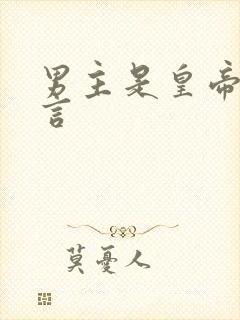 男主是皇帝
言
莫憂人